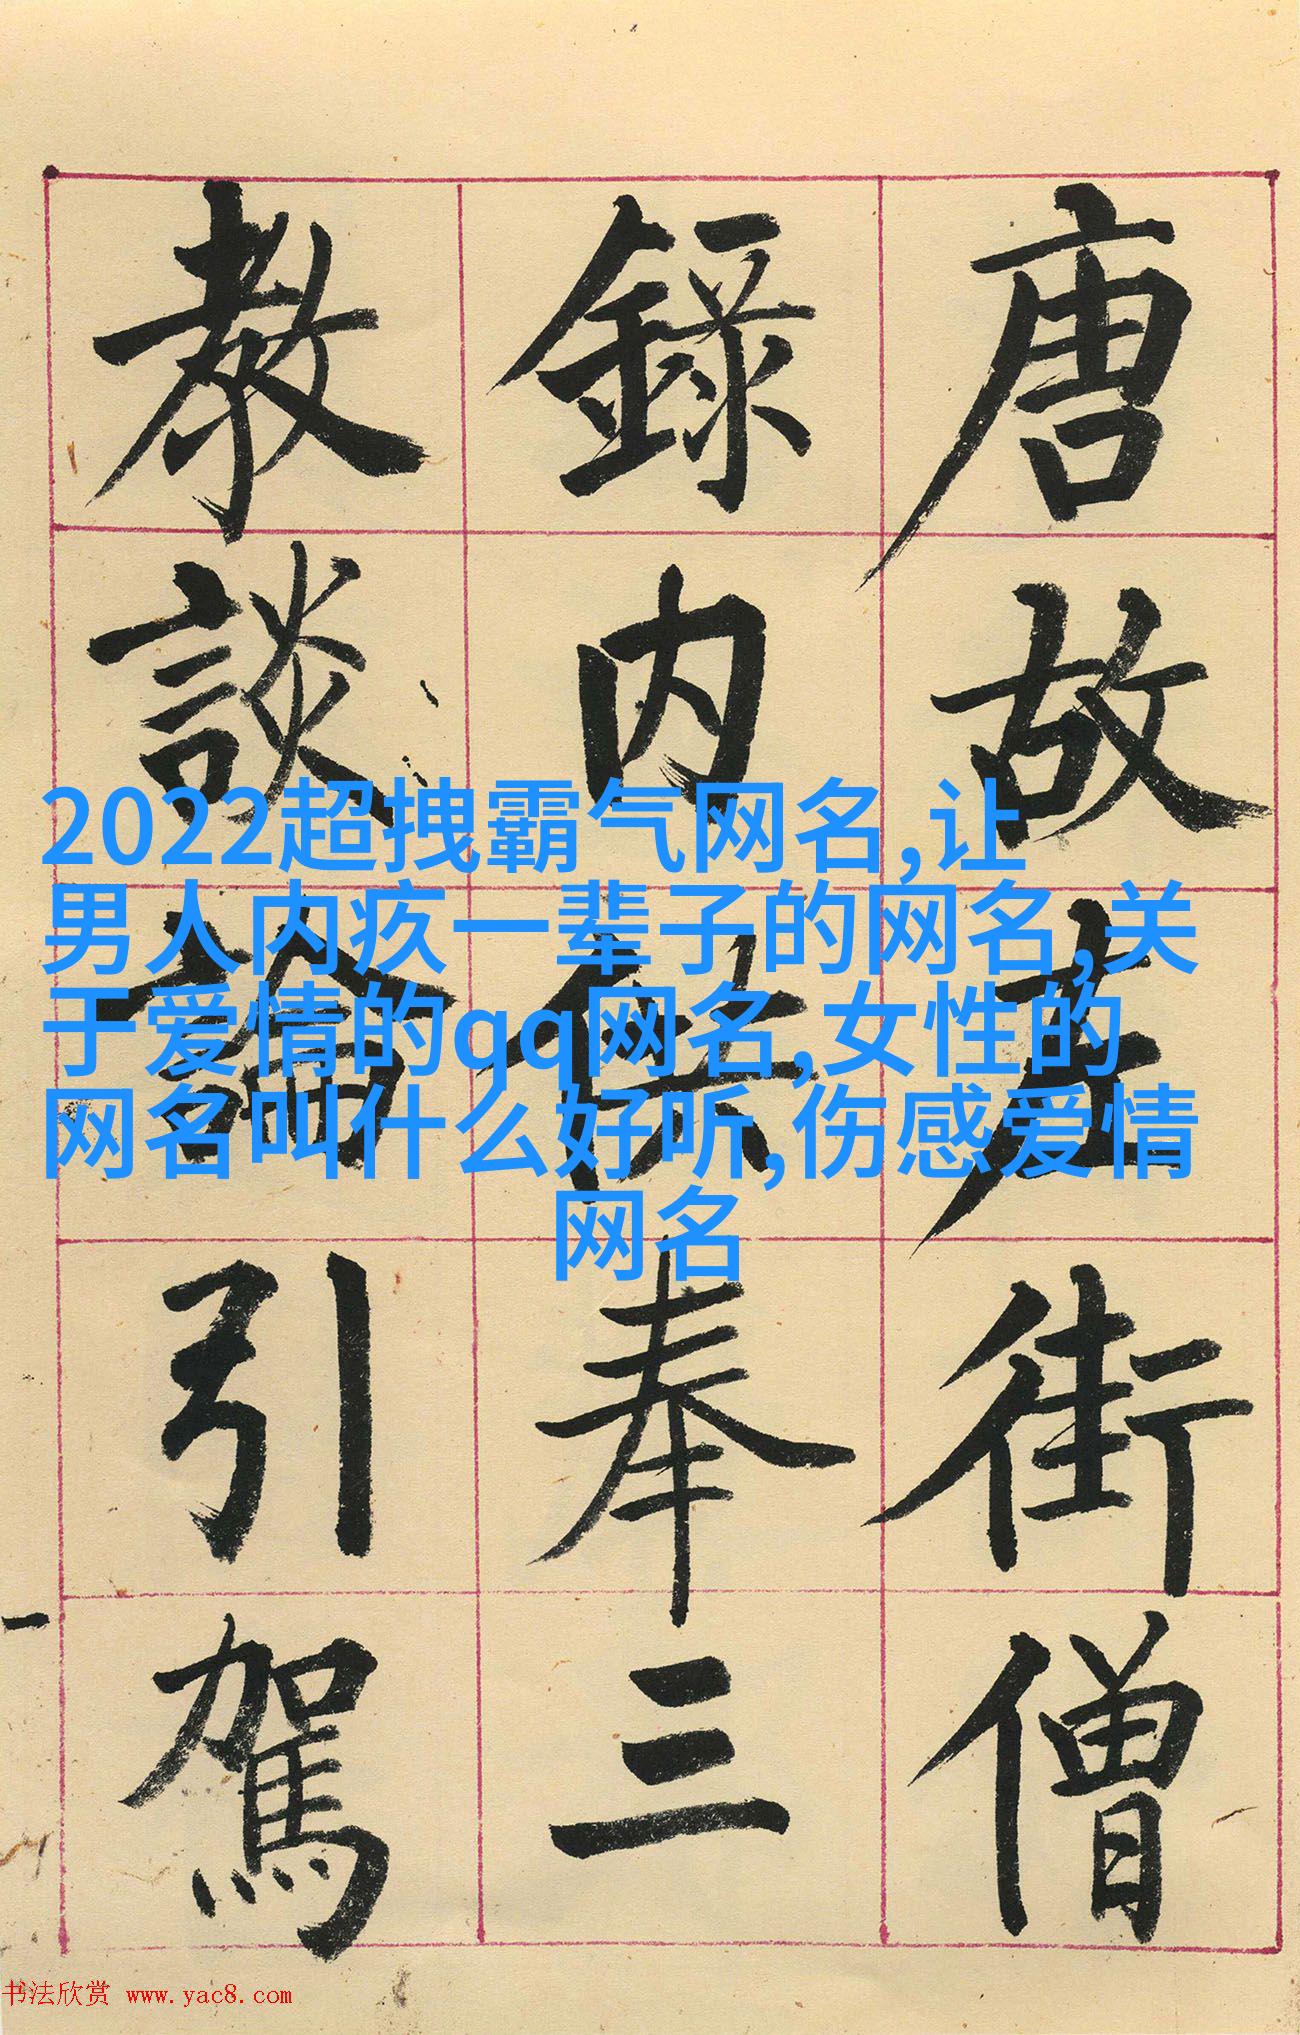 唐故左街僧
錄内供奉三
教談論引駕
2022超拽霸气网名,让
男人内疚一辈子的网名,关
于爱情的qq网名,女性的
网名叫什么好听,伤感爱情
网名
书法欣赏 www.yac8.com